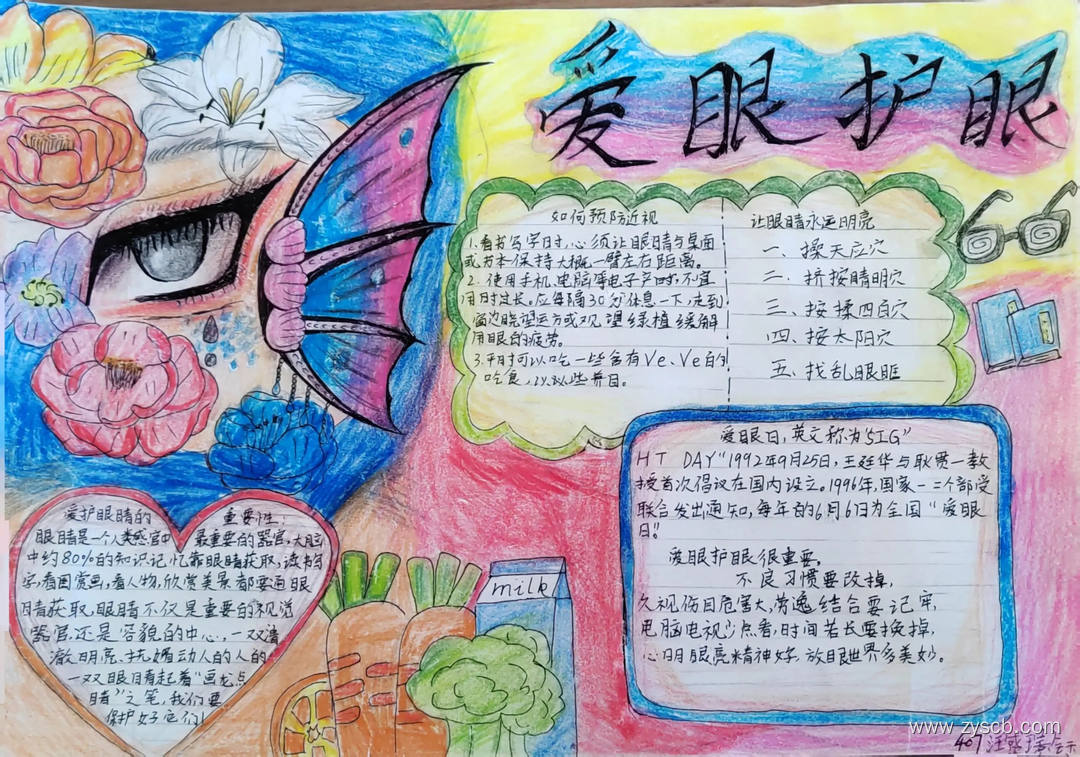 爱眼护眼
如何预防近视
1.看书写字时,心须让眼睛与桌面
或书本保持大概一臂左右距离。
2.使用手机、电脑等电子产时,不宜
用时过长。应每隔30分休息一下,走到
窗边眺望远方或观望绿植缓解
用眼的疲劳。
3.平时可以吃一些含有Ve、Ve的
吃食,以以些养目。
让眼睛永远明亮
一、揉天应穴
二、挤按睛明穴
三、按揉四白穴
四、按太阳穴
五、找乱眼眶
爱眼日,英文称为"SIG"
HT DAY"1992年9月25日,王延华与耿贯一教
授首次倡议在国内设立。1996年,国家一二个部受
联合发出通知,每年的6月6日为全国"爱眼
日"
爱眼护眼很重要。
不良习惯要改掉,
久视伤目危害大,劳逸结合要记牢,
电脑电视少点看,时间若长要换掉,
心明眼亮精神好,放眼世界多美妙。
爱护眼睛的重要性:
眼睛是一个人类感官中最重要的器官,大脑
中约80%的知识记忆靠眼睛获取,读书写
字,看图赏画,看人物,欣赏美景都要通眼
睛获取,眼睛不仅是重要的视觉
器官,还是容貌的中心,一双清
澈明亮、妩媚动人的人的
一双眼睛起着"画龙点
睛"之笔,我们要
保护好它们!
milk
407
www.zyscb.com